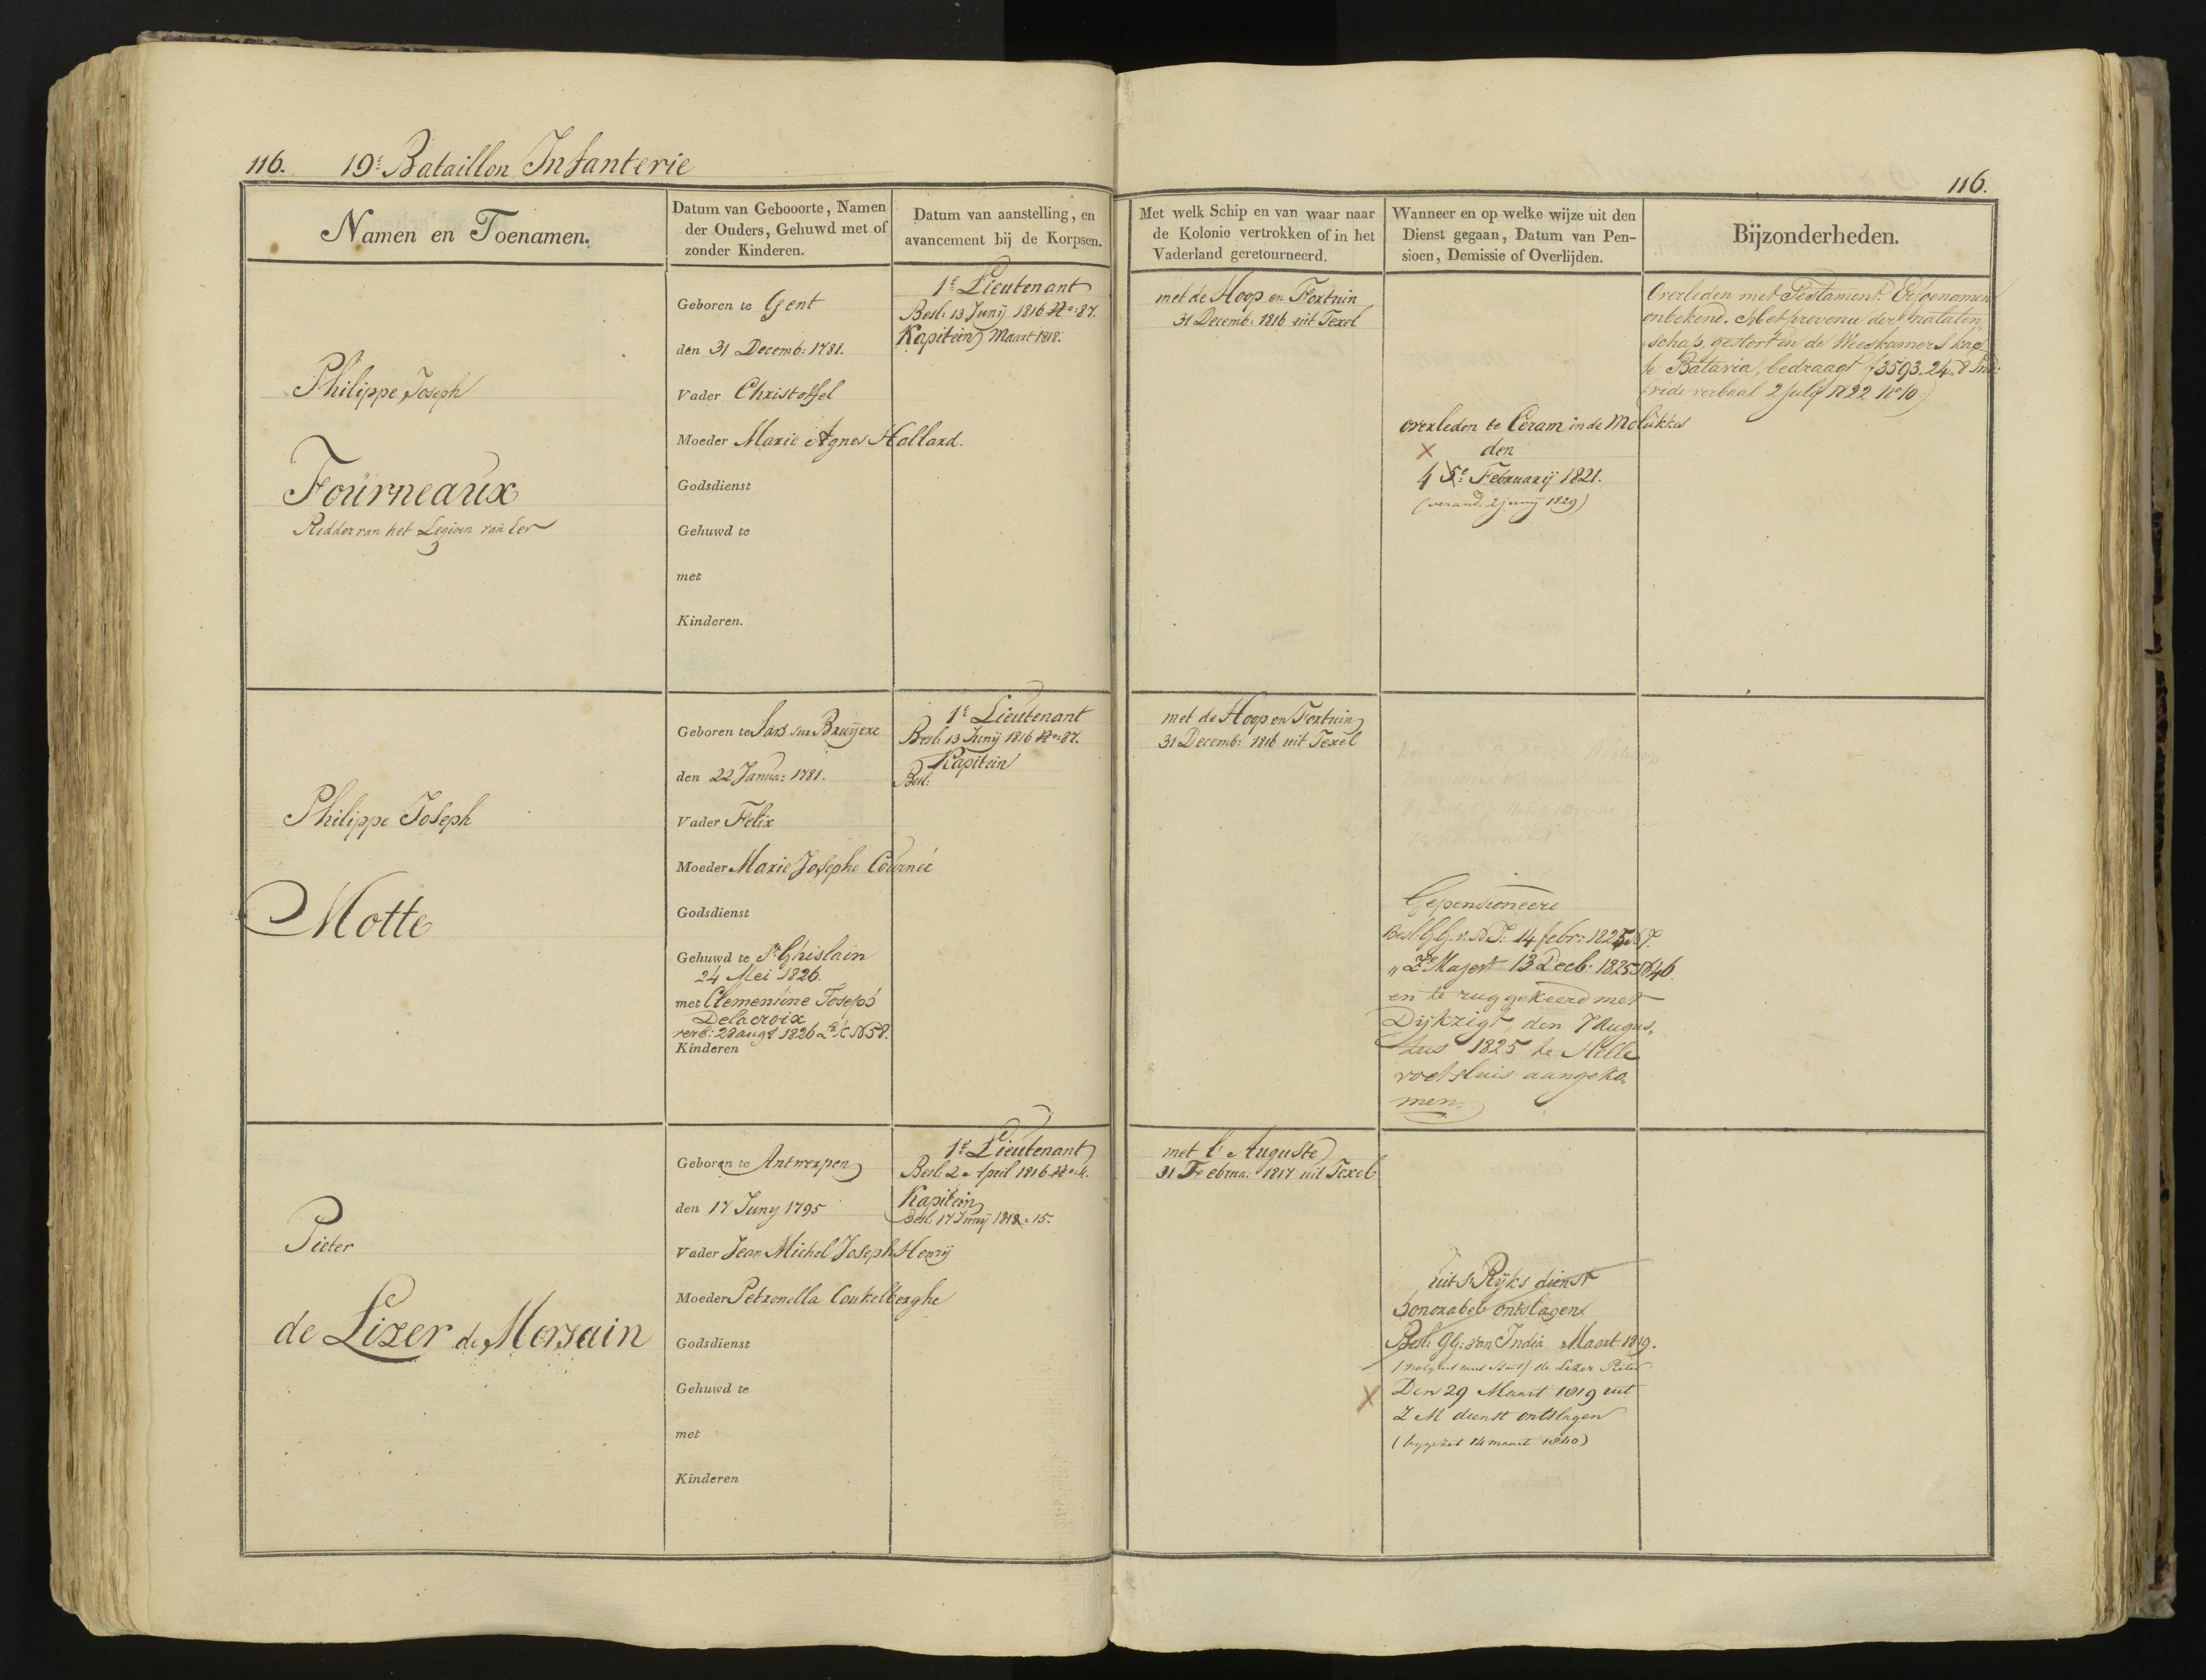 116. 19e Bataillon Infanterie
116.
Namen en Toenamen.
Datum van Gebooorte, Namen
der Ouders, Gehuwd met of
zonder Kinderen.
Datum van aanstelling, en
avancement bij de Korpsen.
Met welk Schip en van waar naar
de Kolonie vertrokken of in het
Vaderland geretourneerd.
Wanneer en op welke wijze uit den
Dienst gegaan, Datum van Pen-
sioen, Demissie of Overlijden.
Bijzonderheden.
Philippe Joseph
Fourneaux
Ridder van het Legioen van Eer
Geboren te Gent
den 31 Decemb: 1781.
Vader Christoffel
Moeder Marie Agnes Hallard.
Godsdienst
Gehuwd te
met
Kinderen.
1e Lieutenant
Besl: 13 Junij 1816 No: 87.
Kapitein Maart 1818.
met de Hoop en Fortuin
31 Decemb: 1816 uit Texel
overleden te Ceram in de Molukkos
den
4 5e Februarij 1821.
(verand. 2 junij 1829)
Overleden met Testament. Erfgenamen
onbekend. Het provenu der nalaten-
schap, gestort in de Weeskamers kas
te Batavia, bedraagt f 3593.24.8 Ind:
(vide verbaal 2 July 1822 No 10.)
Philippe Joseph
Motte
Geboren te Sars sur Bruijere
den 22 Janua: 1781.
Vader Felix
Moeder Marie Josephe Cournéé
Godsdienst
Gehuwd te St Ghislain
24 Mei 1826.
met Clementine Joseph
Delacroix
verb: 28 augt 1826 La C No 58.
Kinderen
1e Lieutenant
Besl: 13 Junij 1816 No: 87.
Kapitein
Besl:
met de Hoop en Fortuin
31 Decemb: 1816 uit Texel
Gepensioneerd
Besl. G.G. v. N.I. 14 febr: 1825 No 7.
" Ze Majest 13 Decb: 1825 No 46.
en te ruggekeerd met
Dijkzigt, den 7 Augus-
tus 1825 te Helle
voetsluis aangeko-
men.
Pieter
de Lizer de Morsain
Geboren te Antwerpen
den 17 Juny 1795
Vader Jean Michel Joseph Henrij
Moeder Petronella Coukelberghe
Godsdienst
Gehuwd te
met
Kinderen
1e Lieutenant
Besl: 2 April 1816 No: 4.
Kapitein
Besl: 17 Junij 1818 : 15.
met l'Auguste
31 Februa: 1817 uit Texel
uit s Rijks dienst
honorabel ontslagen
Besl: GG: van India Maart 1819.
de Lizer Pieter
Den 29 Maart 1819 uit
Z M dienst ontslagen
(bygezet 14 maart 1840)